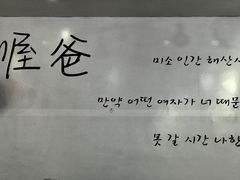 喔爸
미소 인간 해산
만약 어떤 여자가 너 때문
못 갈 시간 나한